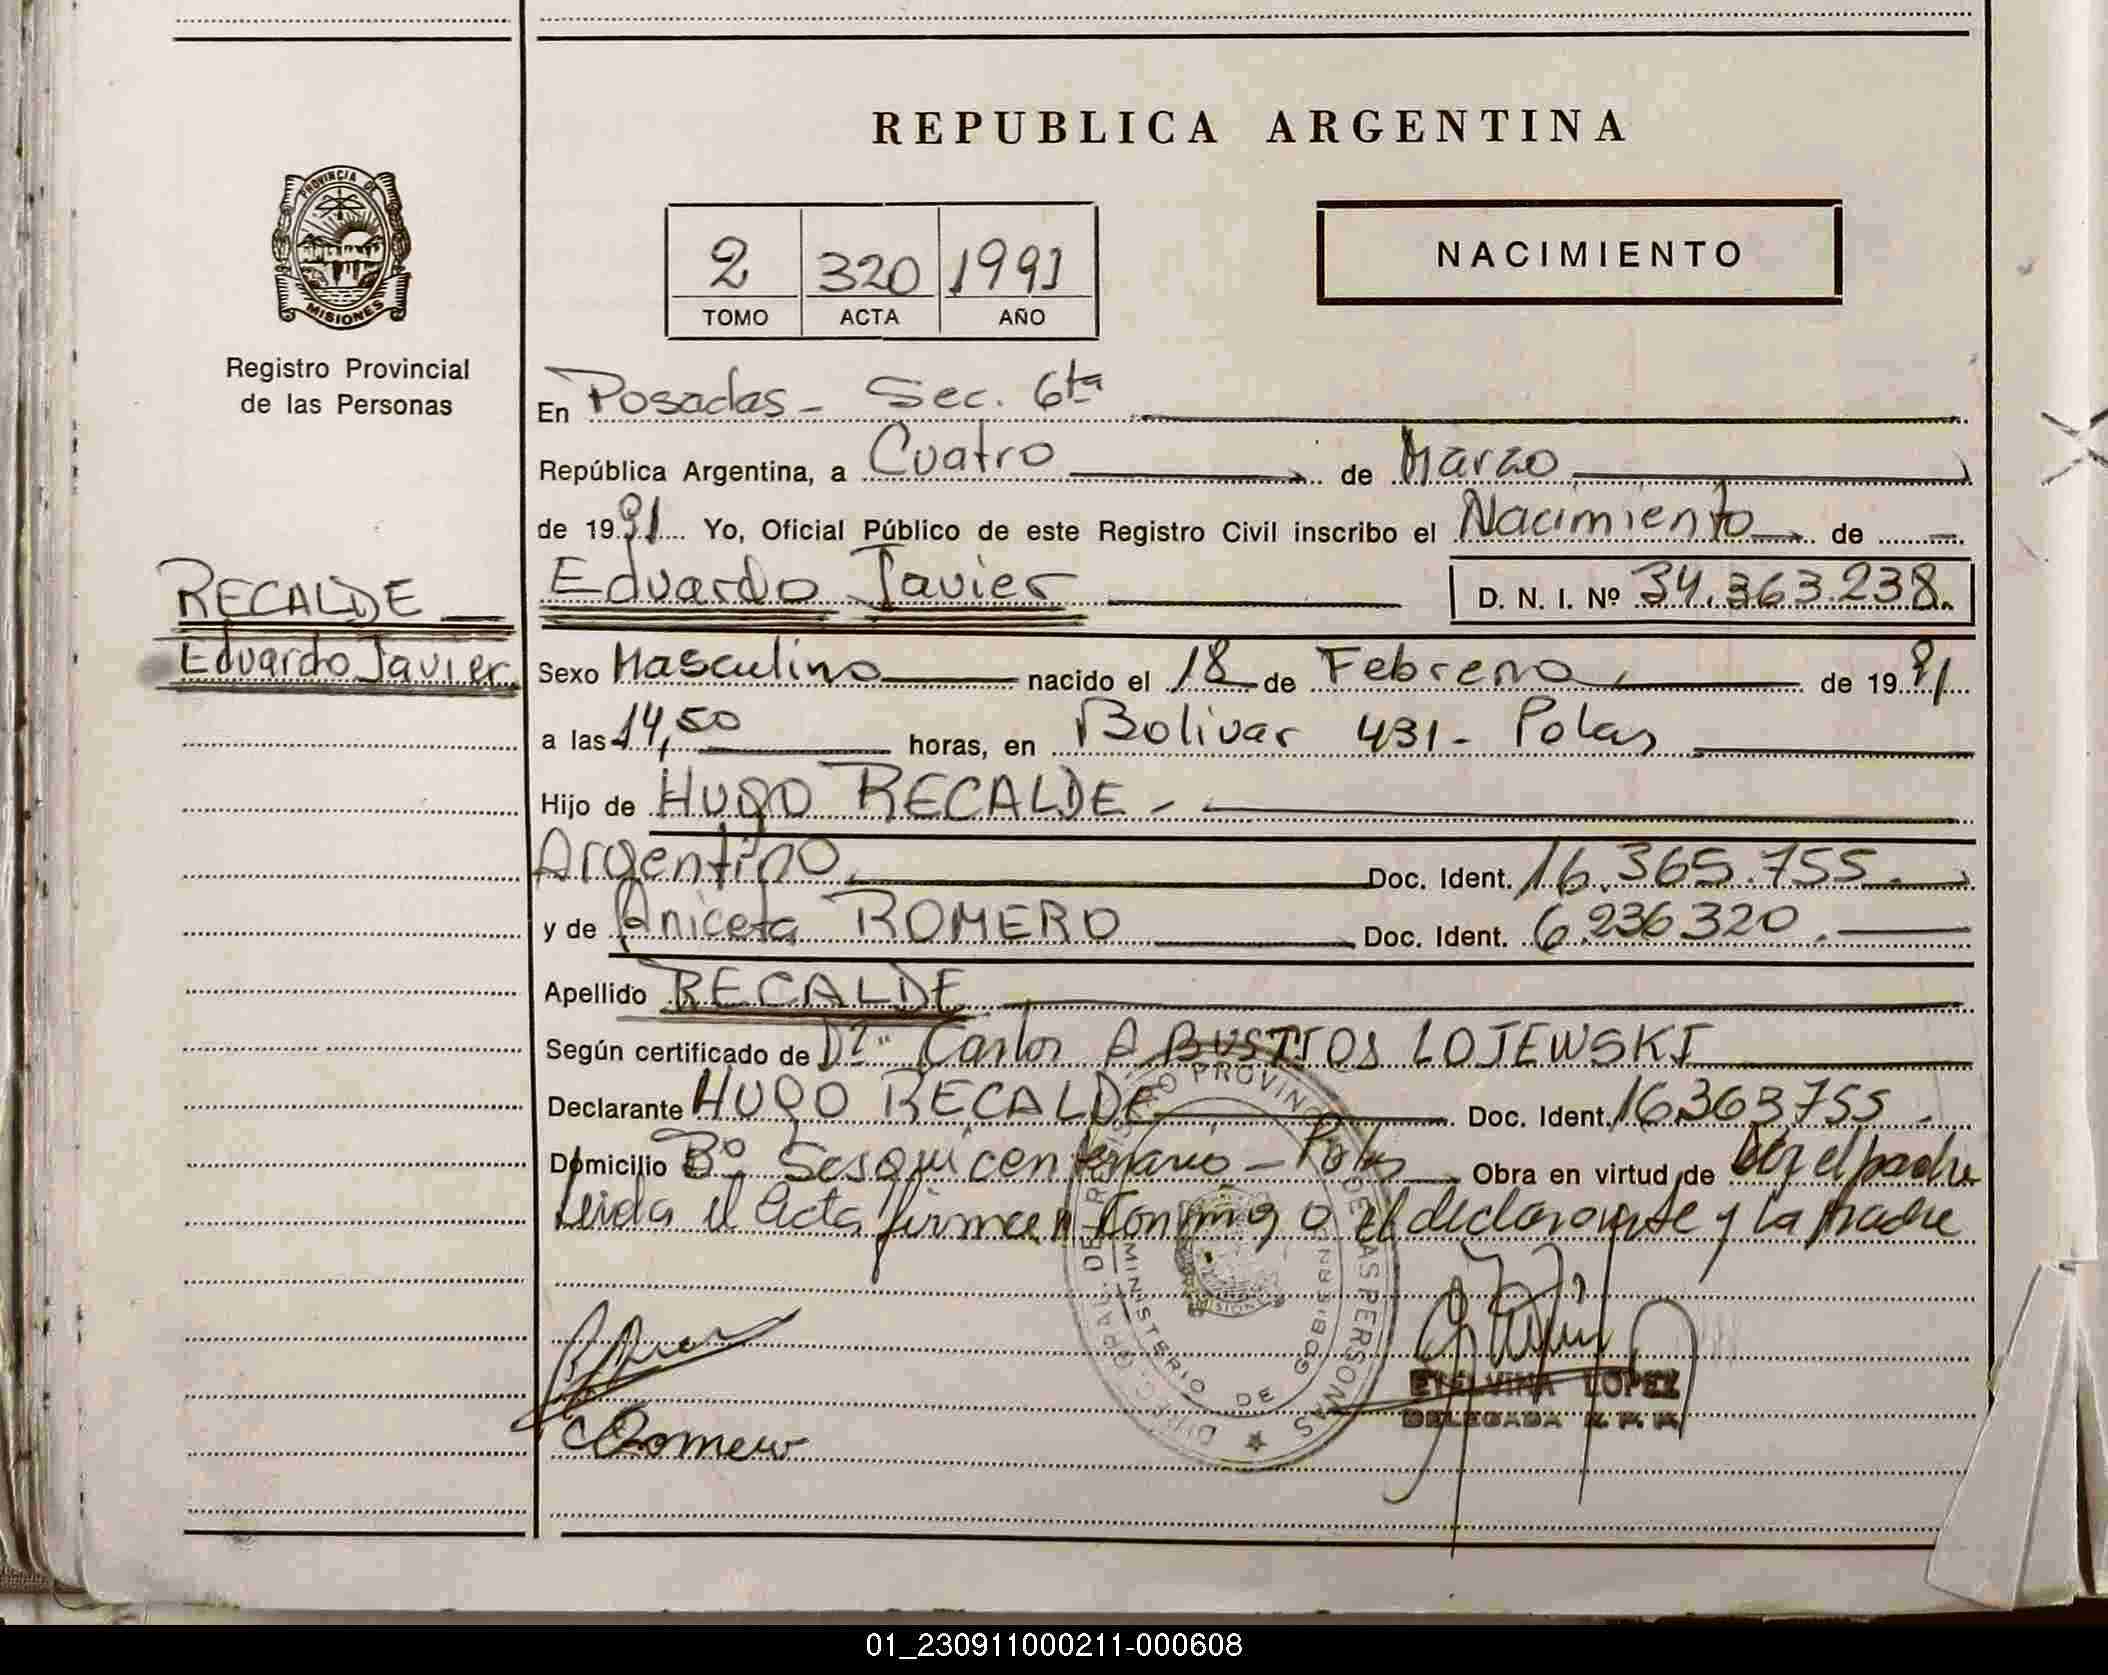 REPUBLICA ARGENTINA
PROVINCIA DE
MISIONES
Registro Provincial
de las Personas
2 320 1991
TOMO ACTA AÑO
NACIMIENTO
En Posadas - Sec. 6ta
República Argentina, a Cuatro de Marzo
de 1991 Yo, Oficial Público de este Registro Civil inscribo el Nacimiento de
RECALDE
Eduardo Javier
Eduardo Javier D. N. I. Nº 34.363.238.
Sexo Masculino nacido el 18 de Febrero de 1991
a las 14,50 horas, en Bolivar 431 - Pdas
Hijo de HUGO RECALDE -
Argentino. Doc. Ident. 16.365.755.
y de Aniceta ROMERO Doc. Ident. 6.236.320.
Apellido RECALDE
Según certificado de Dr. Carlos A BUSTIOS LOJEWSKI
Declarante HUGO RECALDE Doc. Ident. 16363755.
Domicilio Bº Sesquicentenario - Pdas Obra en virtud de Ser el padre
Leida el Acta firman conmigo el declarante y la madre
DIREC. GRAL. DEL REGISTRO PROVINCIAL DE LAS PERSONAS
MINISTERIO DE GOBIERNO
MISIONES
Romero
ETELVINA LOPEZ
DELEGADA R. P. P.
01_230911000211-000608